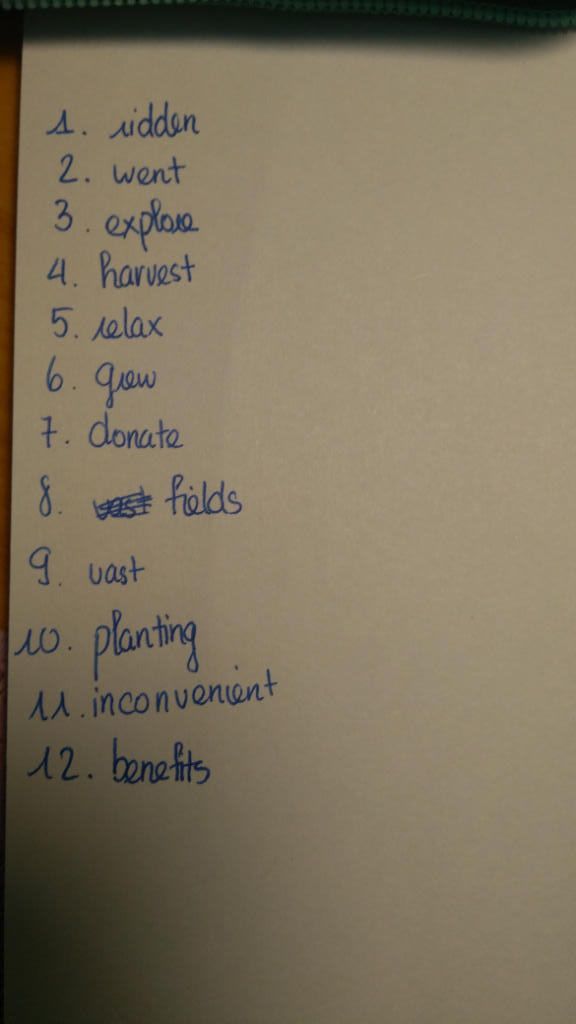 1. ridden
2. went
3. explore
4. harvest
5. relax
6. grow
7. donate
8. fields
9. vast
10. planting
11. inconvenient
12. benefits